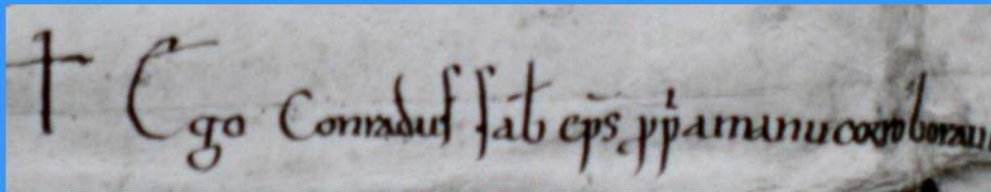 † Ego Conradus sab ep̄s ꝓpͥa manu coroborau